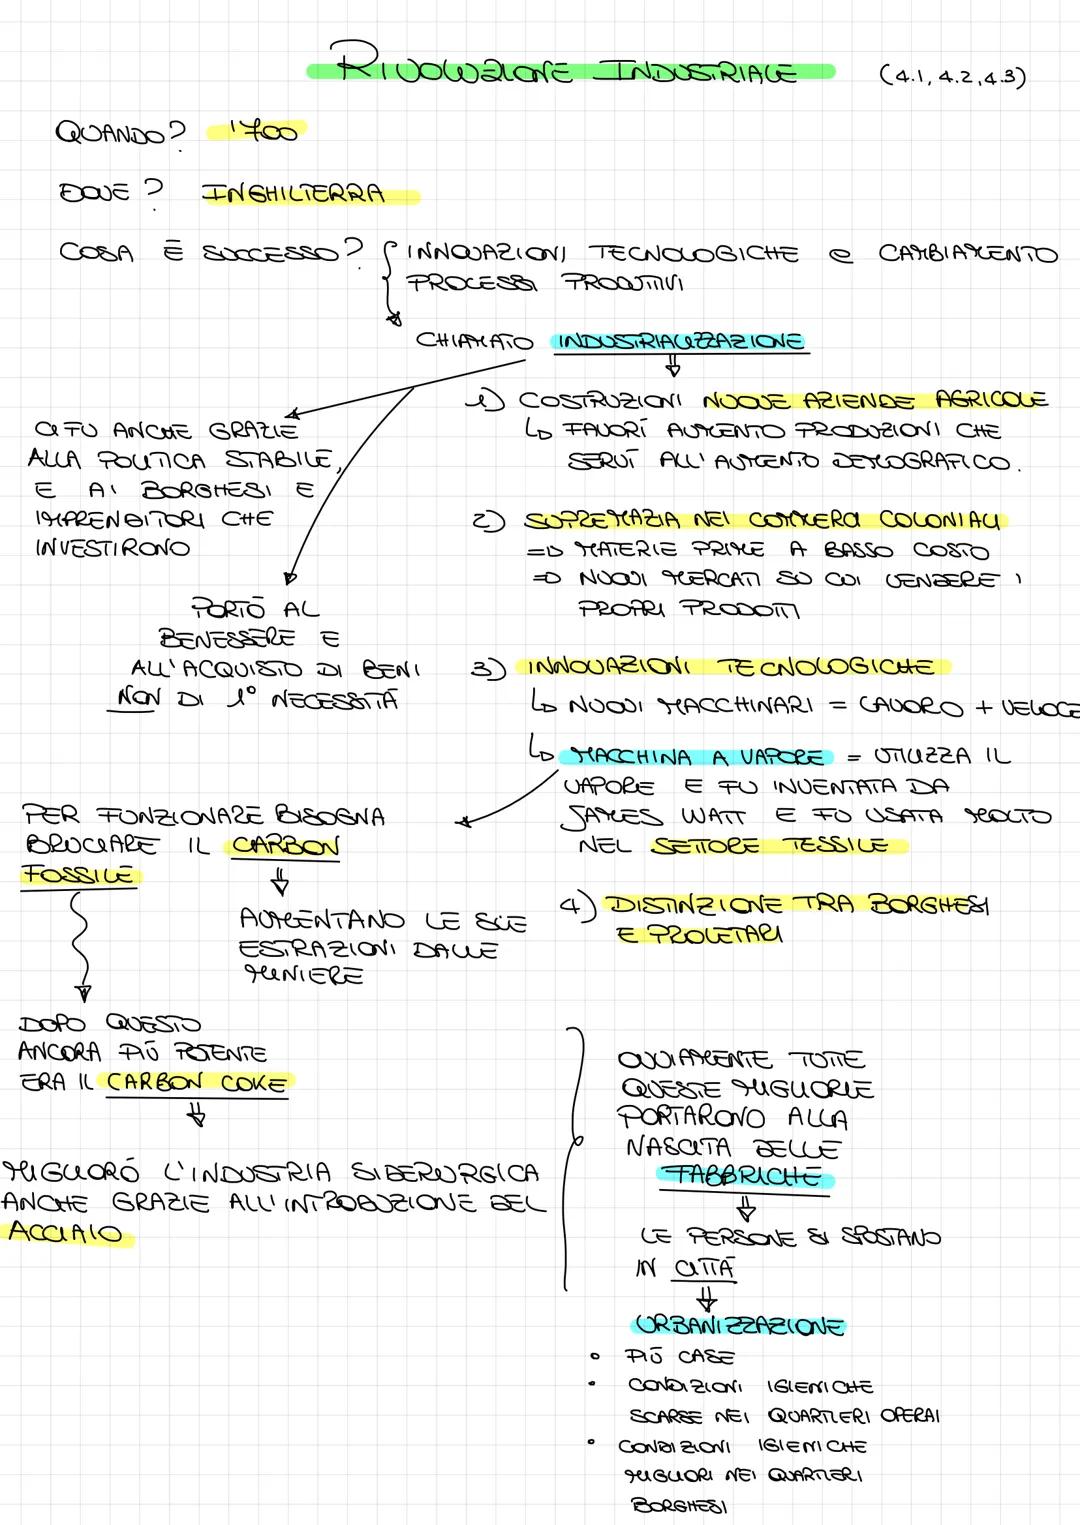 RIVOLUZIONE INDUSTRIALE (4.1, 4.2, 4.3)
QUANDO? '700
DOVE? INGHILTERRA
COSA È SUCCESSO? INNOVAZIONI TECNOLOGICHE e CAMBIAMENTO
PROCESSI PRODUTTIVI
CHIAMATO INDUSTRIALIZZAZIONE
CI FU ANCHE GRAZIE
ALLA POLITICA STABILE,
E AI BORGHESI E
IMPRENDITORI CHE
INVESTIRONO
PORTÒ AL
BENESSERE E
ALL'ACQUISTO DI BENI
NON DI 1° NECESSITÀ
1) COSTRUZIONI NUOVE AZIENDE AGRICOLE
↳ FAVORÌ AUMENTO PRODUZIONI CHE
SERVÌ ALL'AUMENTO DEMOGRAFICO.
2) SUPREMAZIA NEI COMMERCI COLONIALI
⇒ MATERIE PRIME A BASSO COSTO
⇒ NUOVI MERCATI SU CUI VENDERE I
PROPRI PRODOTTI
3) INNOVAZIONI TECNOLOGICHE
↳ NUOVI MACCHINARI = LAVORO + VELOCE
↳ MACCHINA A VAPORE = UTILIZZA IL
VAPORE E FU INVENTATA DA
JAMES WATT E FU USATA MOLTO
NEL SETTORE TESSILE
PER FUNZIONARE BISOGNA
BRUCIARE IL CARBON
FOSSILE
AUMENTANO LE SUE
ESTRAZIONI DALLE
MINIERE
4) DISTINZIONE TRA BORGHESI
E PROLETARI
DOPO QUESTO
ANCORA PIÙ POTENTE
ERA IL CARBON COKE
MIGLIORÒ L'INDUSTRIA SIDERURGICA
ANCHE GRAZIE ALL'INTRODUZIONE DEL
ACCIAIO
OVVIAMENTE TUTTE
QUESTE MIGLIORIE
PORTARONO ALLA
NASCITA DELLE
FABBRICHE
LE PERSONE SI SPOSTANO
IN CITTÀ
URBANIZZAZIONE
• PIÙ CASE
• CONDIZIONI IGIENICHE
SCARSE NEI QUARTIERI OPERAI
• CONDIZIONI IGIENICHE
MIGLIORI NEI QUARTIERI
BORGHESI